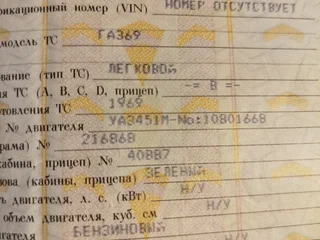 фикационный номер (VIN) НОМЕР ОТСУТСТВУЕТ
модель ТС ГАЗ69
ование (тип ТС) ЛЕГКОВОЙ
я ТС (A, B, C, D, прицеп) -= B =-
отовления ТС 1969
№ двигателя УАЗ451М-No:10801668
рама) № 216868
кабина, прицеп) № 40887
зова (кабины, прицепа) ЗЕЛЕНЫЙ
ь двигателя, л. с. (кВт) Н/У
объем двигателя, куб. см Н/У
двигателя БЕНЗИНОВЫЙ